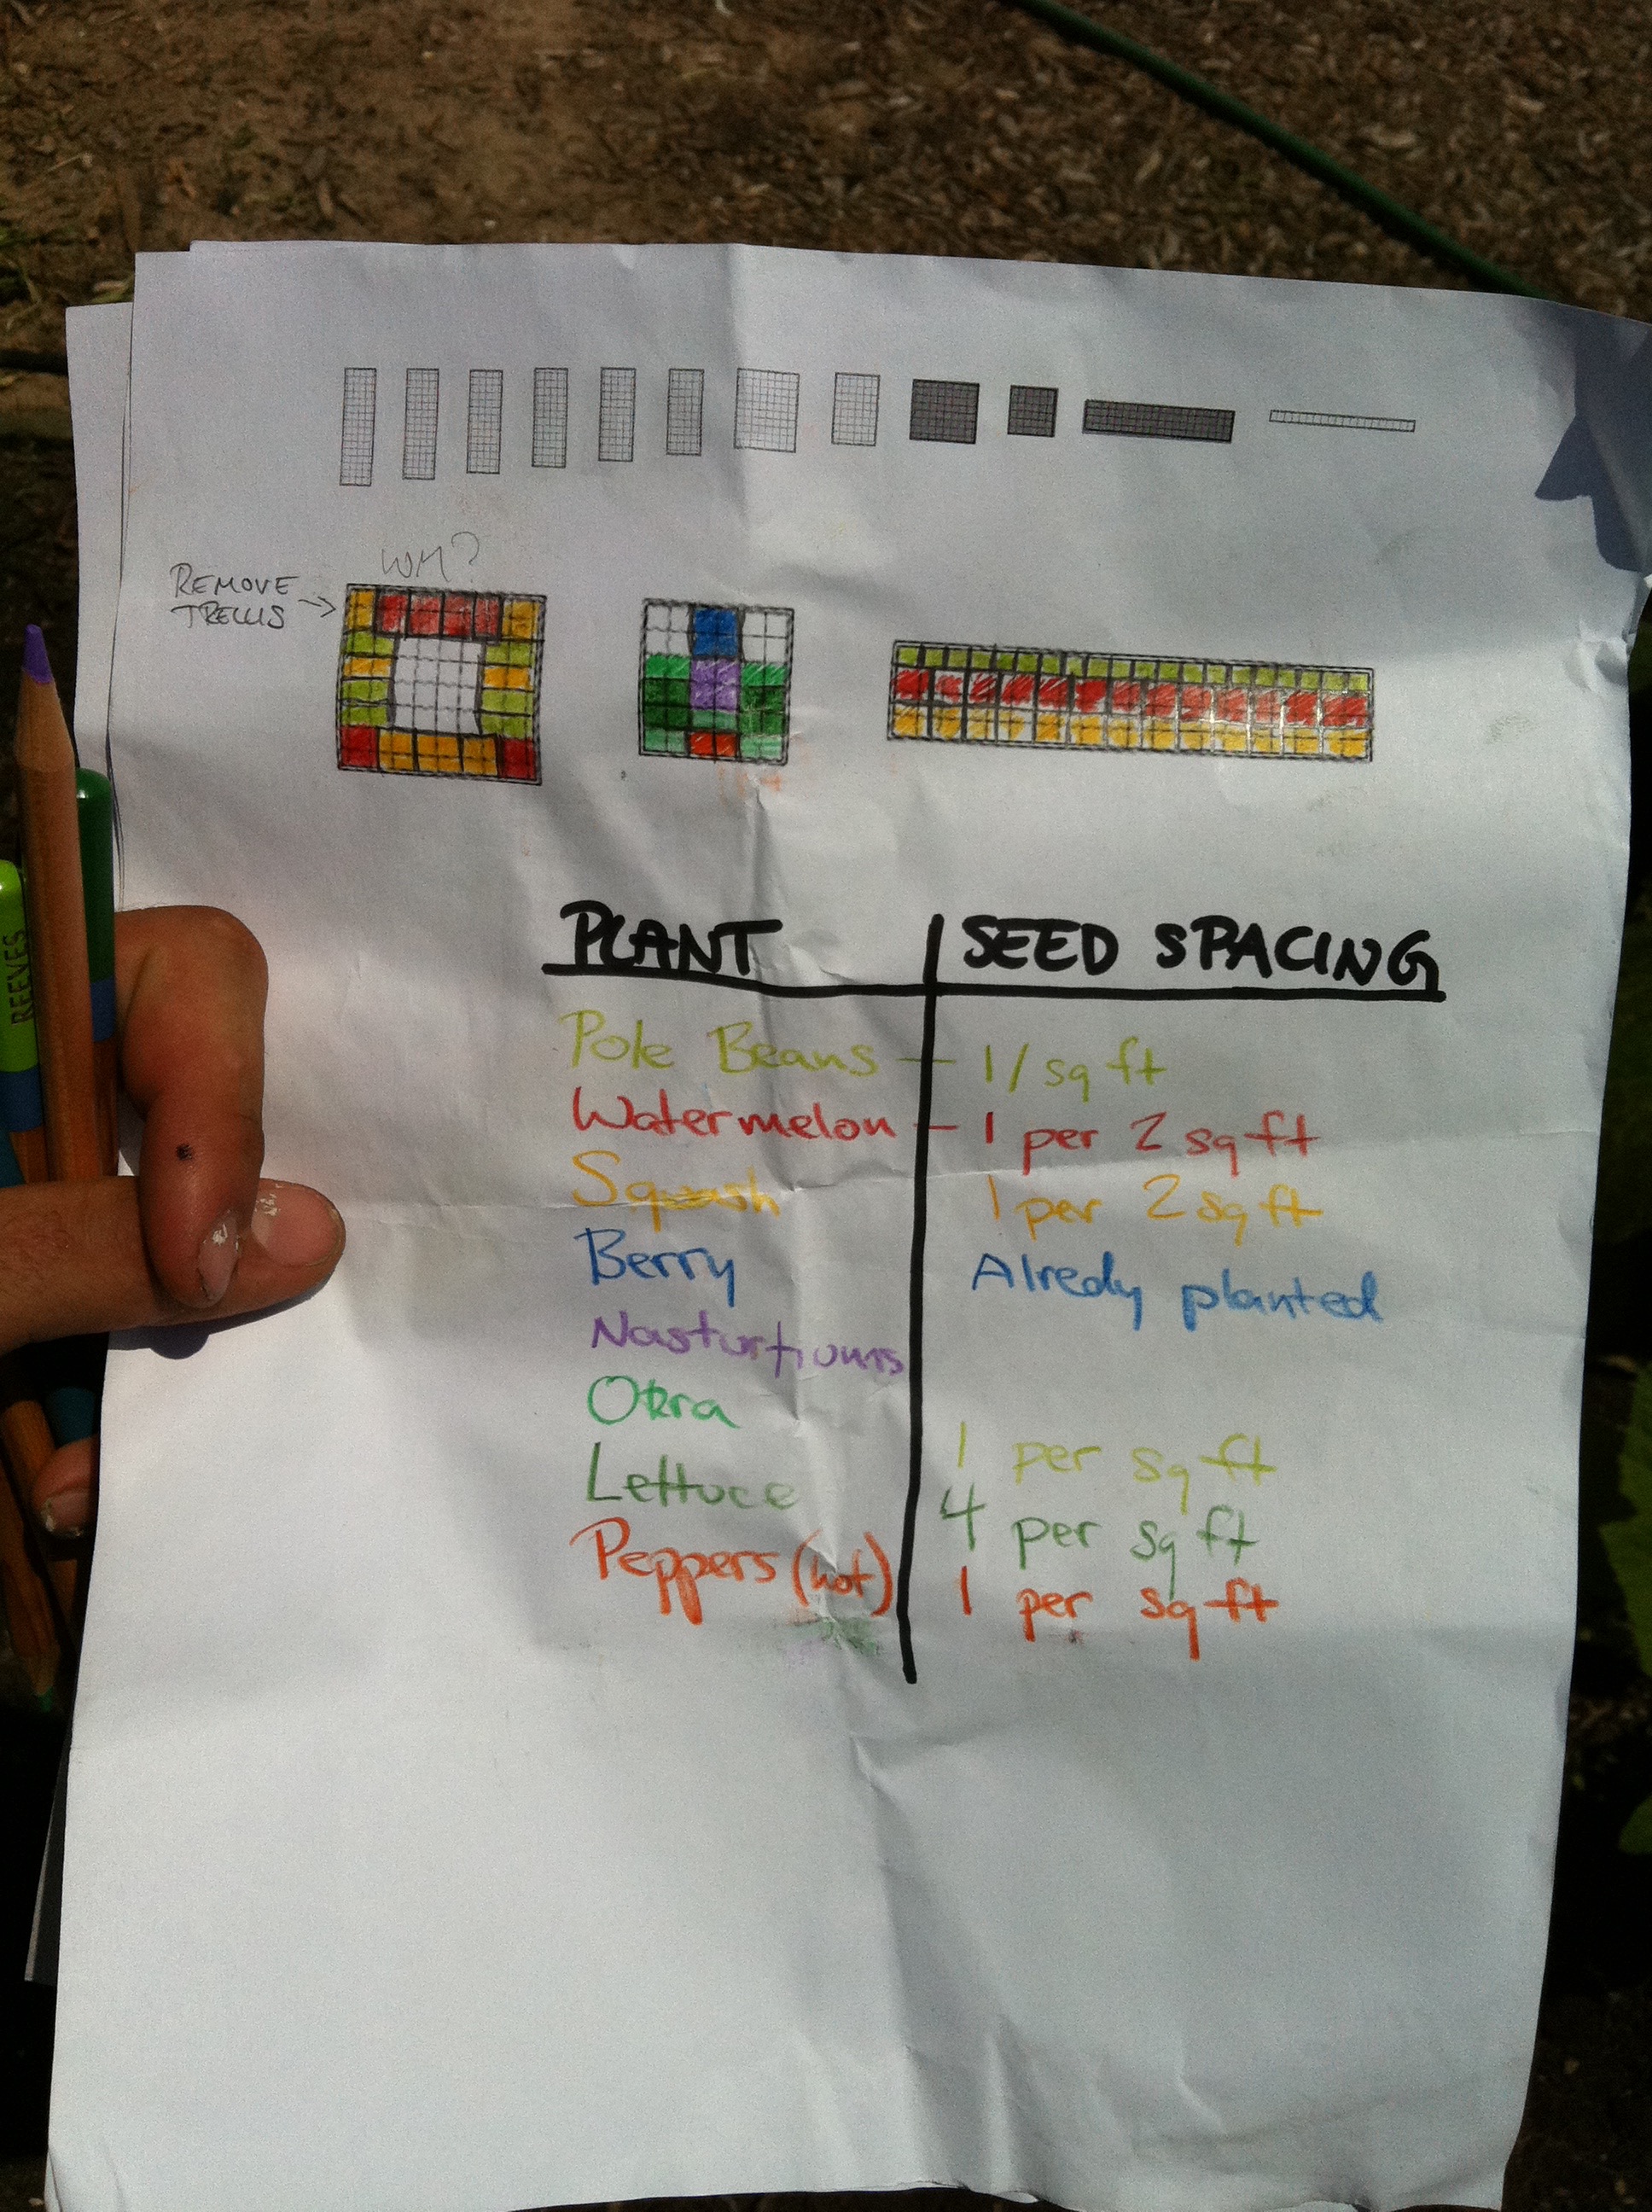 WM?
REMOVE
TRELLIS
PLANT SEED SPACING
Pole Beans - 1/sq ft
Watermelon - 1 per 2 sq ft
Squash 1 per 2 sq ft
Berry Alredy planted
Nasturtiums
Okra 1 per sq ft
Lettuce 4 per sq ft
Peppers (hot) 1 per sq ft
REEVES